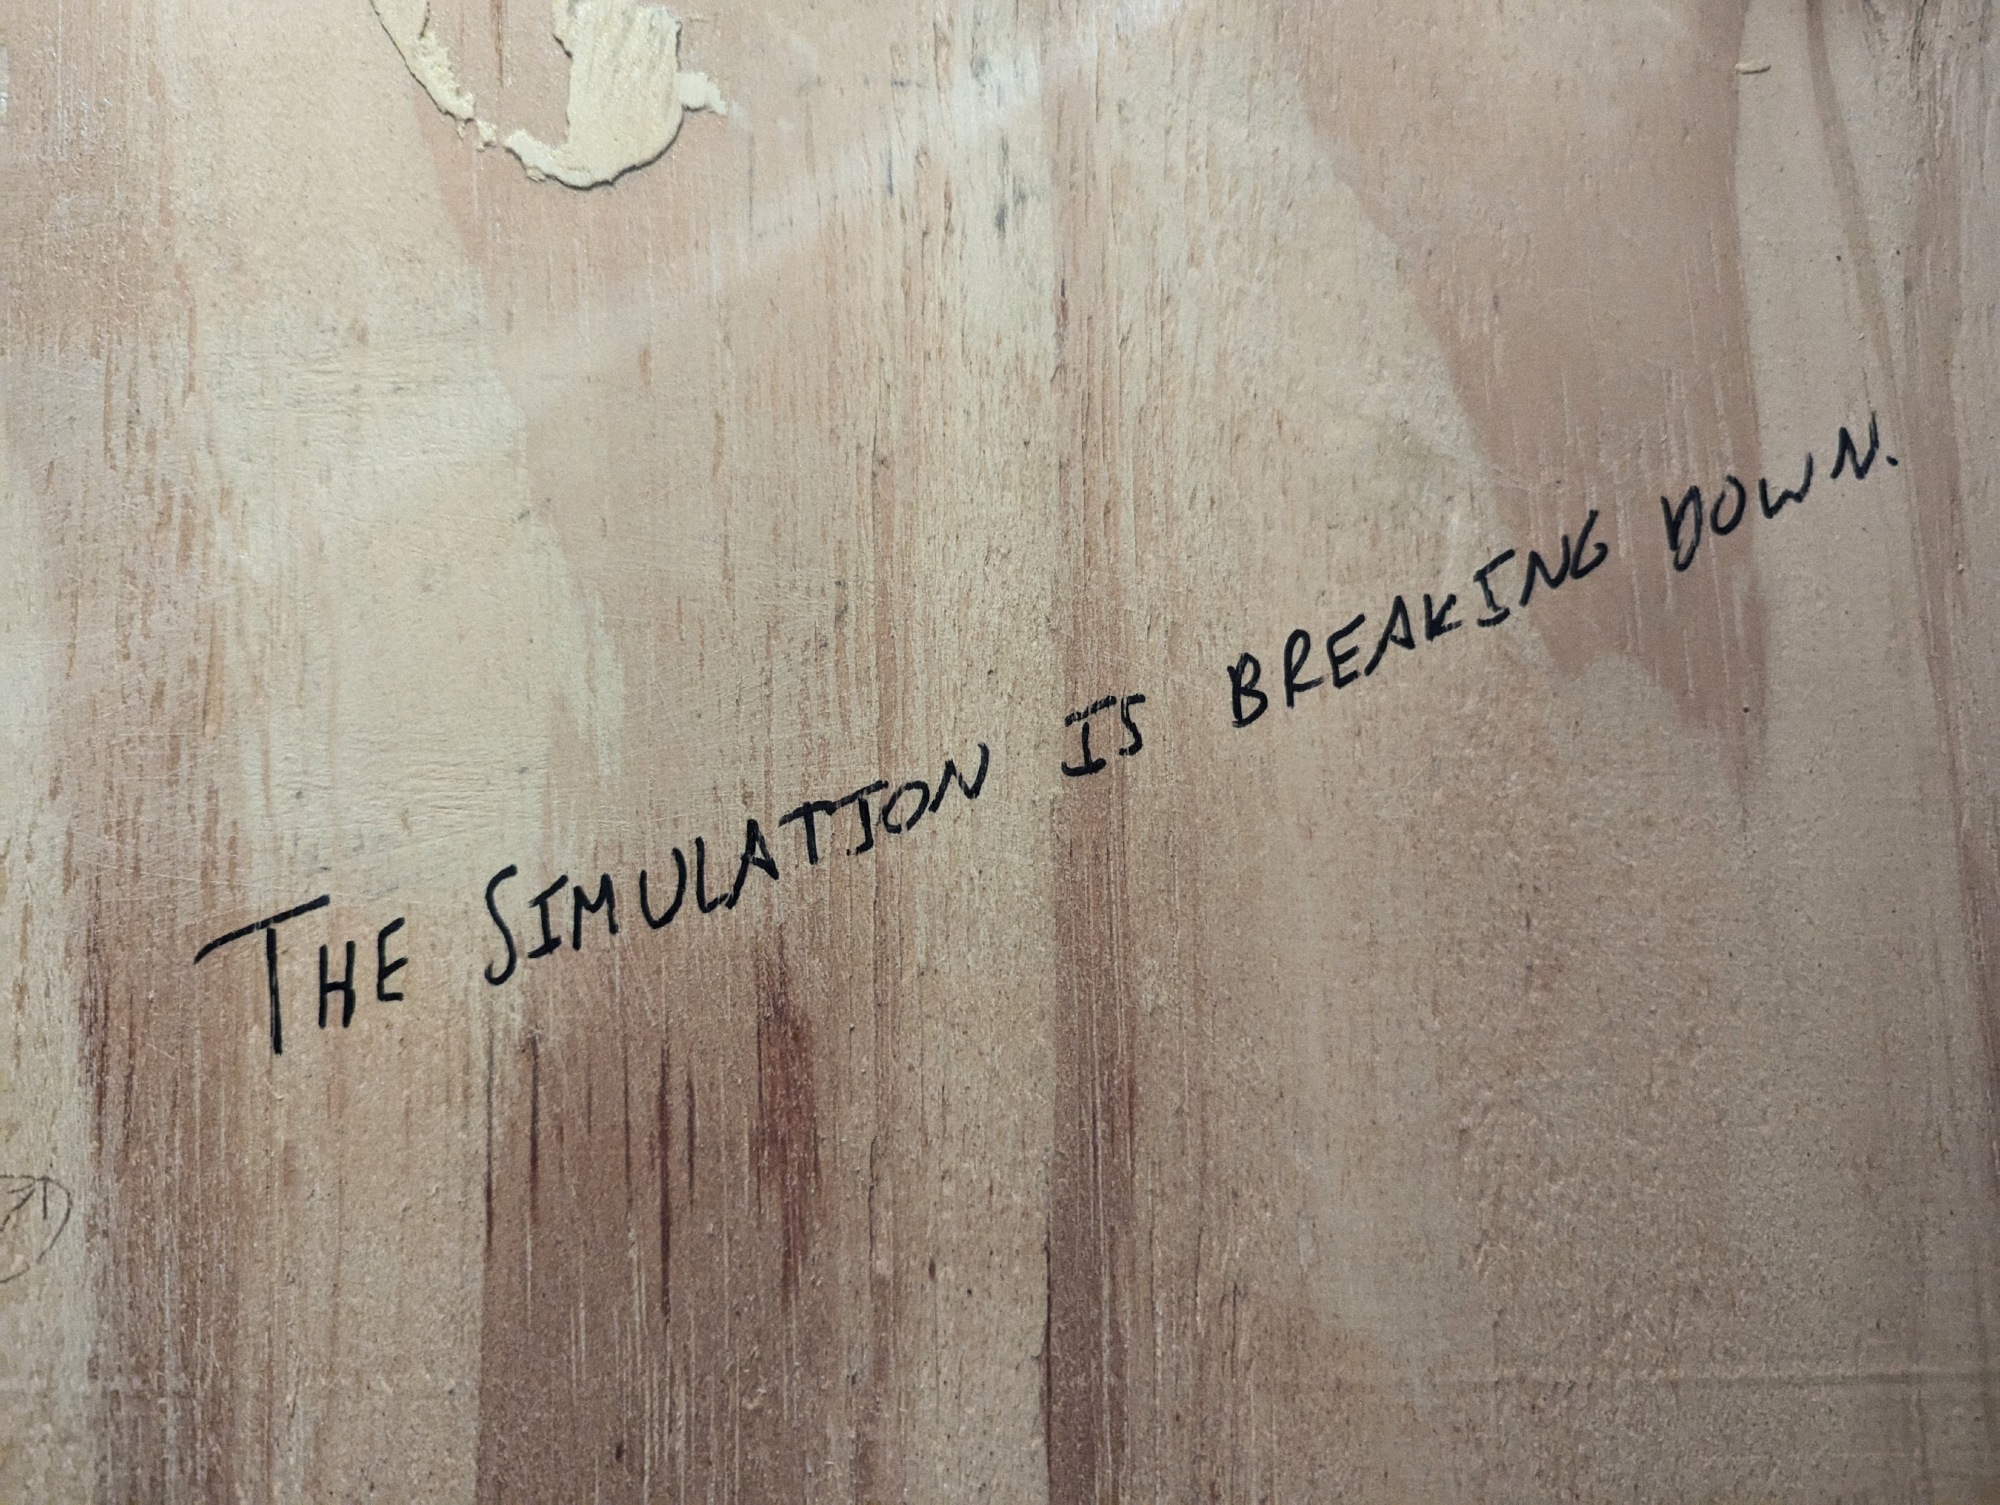 The Simulation is breaking down.